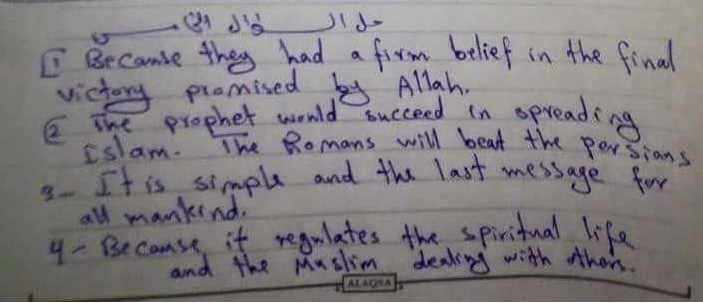 1 Because they had a firm belief in the final
victory promised by Allah.
2 The prophet would succeed in spreading
Islam. The Romans will beat the persians
3- It is simple and the last message for
all mankind.
4- Because it regulates the spiritual life
and the Muslim dealing with others.
ALAQSA